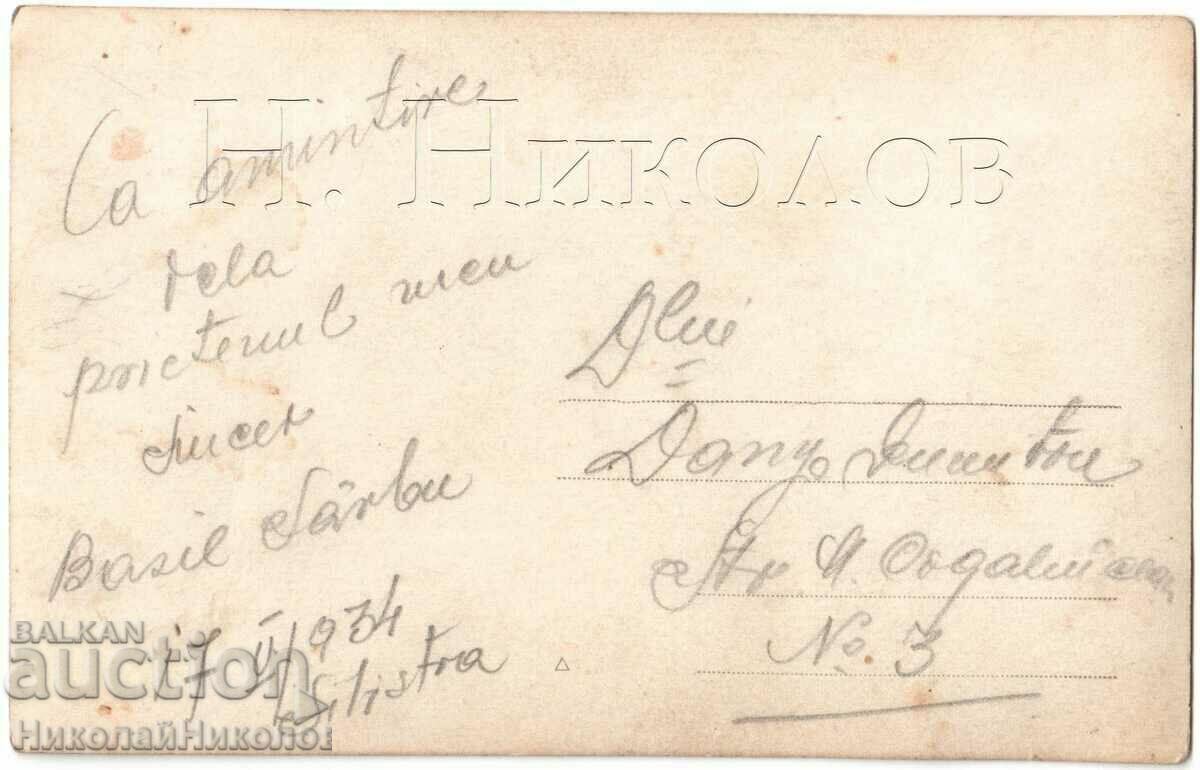 Ca amintire
dela
prietenul meu
sincer
Basil Sârbu
17 II/934
Silistra
Dlui
Dany Dumitru
Str M. Cogalniceanu
No 3
Н. Николов
BALKAN
auction
НиколайНиколов